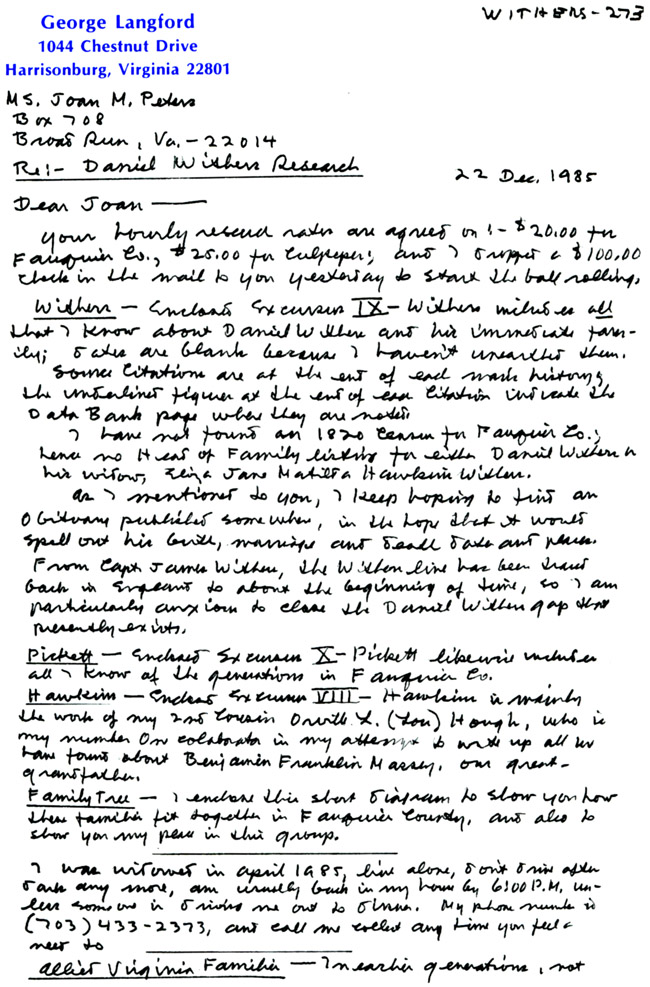 WITHERS-273
George Langford
1044 Chestnut Drive
Harrisonburg, Virginia 22801
MS. Joan M. Peters
Box 708
Broad Run, Va. - 22014
Re:- Daniel Withers Research
22 Dec. 1985
Dear Joan —
your hourly research rates are agreed on :- $20.00 for
Fauquier Co., $25.00 for Culpeper; and I dropped a $100.00
check in the mail to you yesterday to start the ball rolling.
Withers — Enclosed Excursus IX - Withers includes all
that I know about Daniel Withers and his immediate fam-
ily; dates are blank because I haven't unearthed them.
Source Citations are at the end of each history;
the underlined figures at the end of each Citation indicate the
Data Bank page where they are noted.
I have not found an 1820 Census for Fauquier Co.;
hence no Head of Family listing for either Daniel Withers or
his widow, Eliza Jane Matilda Hawkins Withers.
As I mentioned to you, I keep hoping to find an
Obituary published somewhere, in the hope that it would
spell out his birth, marriage and death dates and places.
From Capt James Withers, the Withers line has been traced
back in England to about the beginning of time, so I am
particularly anxious to close the Daniel Withers gap that
presently exists.
Pickett — Enclosed Excursus X - Pickett likewise includes
all I know of the generations in Fauquier Co.
Hawkins — Enclosed Excursus VIII - Hawkins is mainly
the work of my 2nd Cousin Orville L. (Lou) Hough, who is
my number One collaborator in my attempt to write up all we
have found about Benjamin Franklin Massey, our great-
grandfather.
Family Tree — I enclose this short diagram to show you how
these families fit together in Fauquier County, and also to
show you my place in this group.
I was widowed in April 1985, live alone, don't drive after
dark any more, am usually back in my home by 6:00 P.M. un-
less someone is driving me out to dinner. My phone number is
(703) 433-2373, and call me collect any time you feel a
need to
Allied Virginia Families — In earlier generations, not